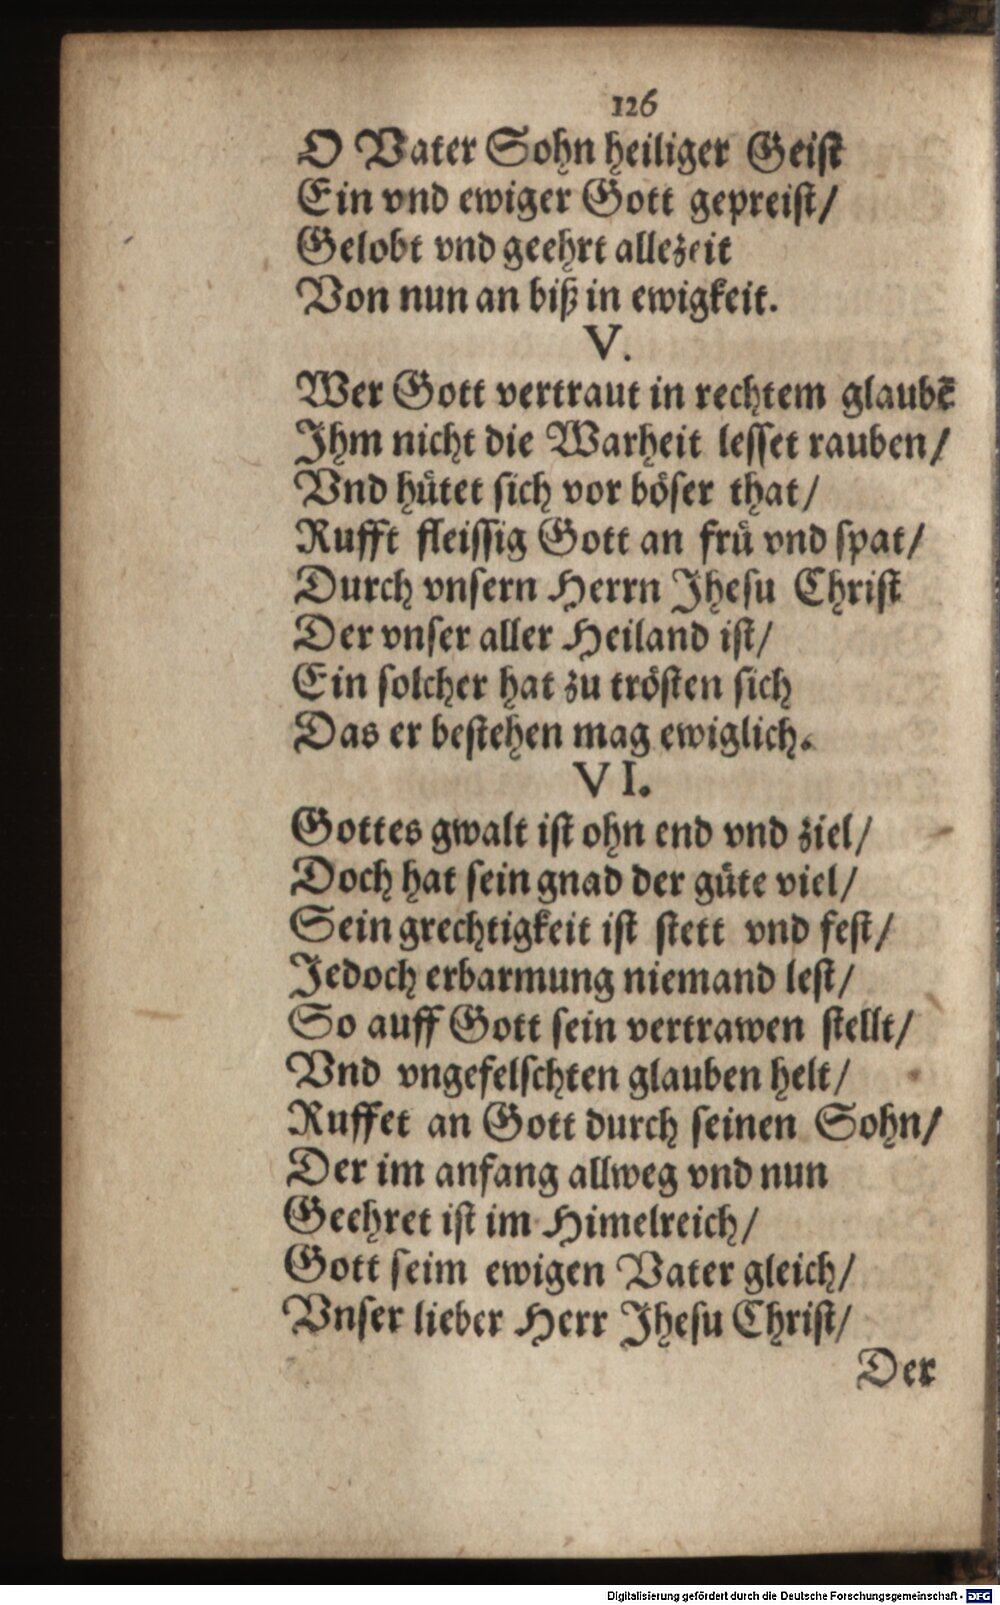 126
O Vater Sohn heiliger Geist
Ein vnd ewiger Gott gepreist/
Gelobt vnd geehrt allezeit
Von nun an biß in ewigkeit.
V.
Wer Gott vertraut in rechtem glaubē
Ihm nicht die Warheit lesset rauben/
Vnd hütet sich vor böser that/
Rufft fleissig Gott an frü vnd spat/
Durch vnsern Herrn Jhesu Christ
Der vnser aller Heiland ist/
Ein solcher hat zu trösten sich
Das er bestehen mag ewiglich.
VI.
Gottes gwalt ist ohn end vnd ziel/
Doch hat sein gnad der güte viel/
Sein grechtigkeit ist stett vnd fest/
Jedoch erbarmung niemand lest/
So auff Gott sein vertrawen stellt/
Vnd vngefelschten glauben helt/
Ruffet an Gott durch seinen Sohn/
Der im anfang allweg vnd nun
Geehret ist im Himelreich/
Gott seim ewigen Vater gleich/
Vnser lieber Herr Jhesu Christ/
Der
Digitalisierung gefördert durch die Deutsche Forschungsgemeinschaft - DFG